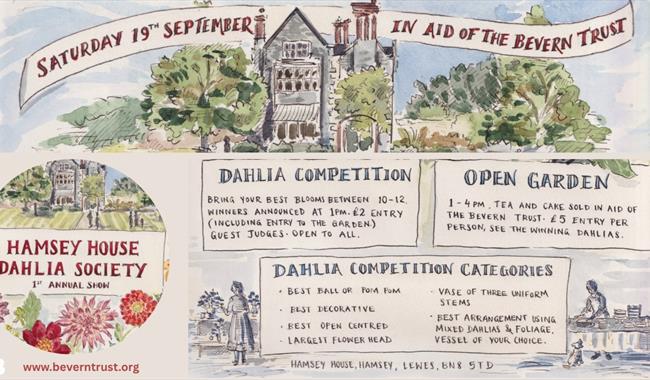 SATURDAY 19TH SEPTEMBER
IN AID OF THE BEVERN TRUST
HAMSEY HOUSE
DAHLIA SOCIETY
1ST ANNUAL SHOW
www.beverntrust.org
DAHLIA COMPETITION
BRING YOUR BEST BLOOMS BETWEEN 10-12.
WINNERS ANNOUNCED AT 1PM. £2 ENTRY
(INCLUDING ENTRY TO THE GARDEN)
GUEST JUDGES - OPEN TO ALL.
OPEN GARDEN
1-4PM. TEA AND CAKE SOLD IN AID OF
THE BEVERN TRUST. £5 ENTRY PER
PERSON, SEE THE WINNING DAHLIAS.
DAHLIA COMPETITION CATEGORIES
· BEST BALL OR POM POM
· BEST DECORATIVE
· BEST OPEN CENTRED
· LARGEST FLOWER HEAD
· VASE OF THREE UNIFORM
STEMS
· BEST ARRANGEMENT USING
MIXED DAHLIAS & FOLIAGE,
VESSEL OF YOUR CHOICE.
HAMSEY HOUSE, HAMSEY, LEWES, BN8 5TD